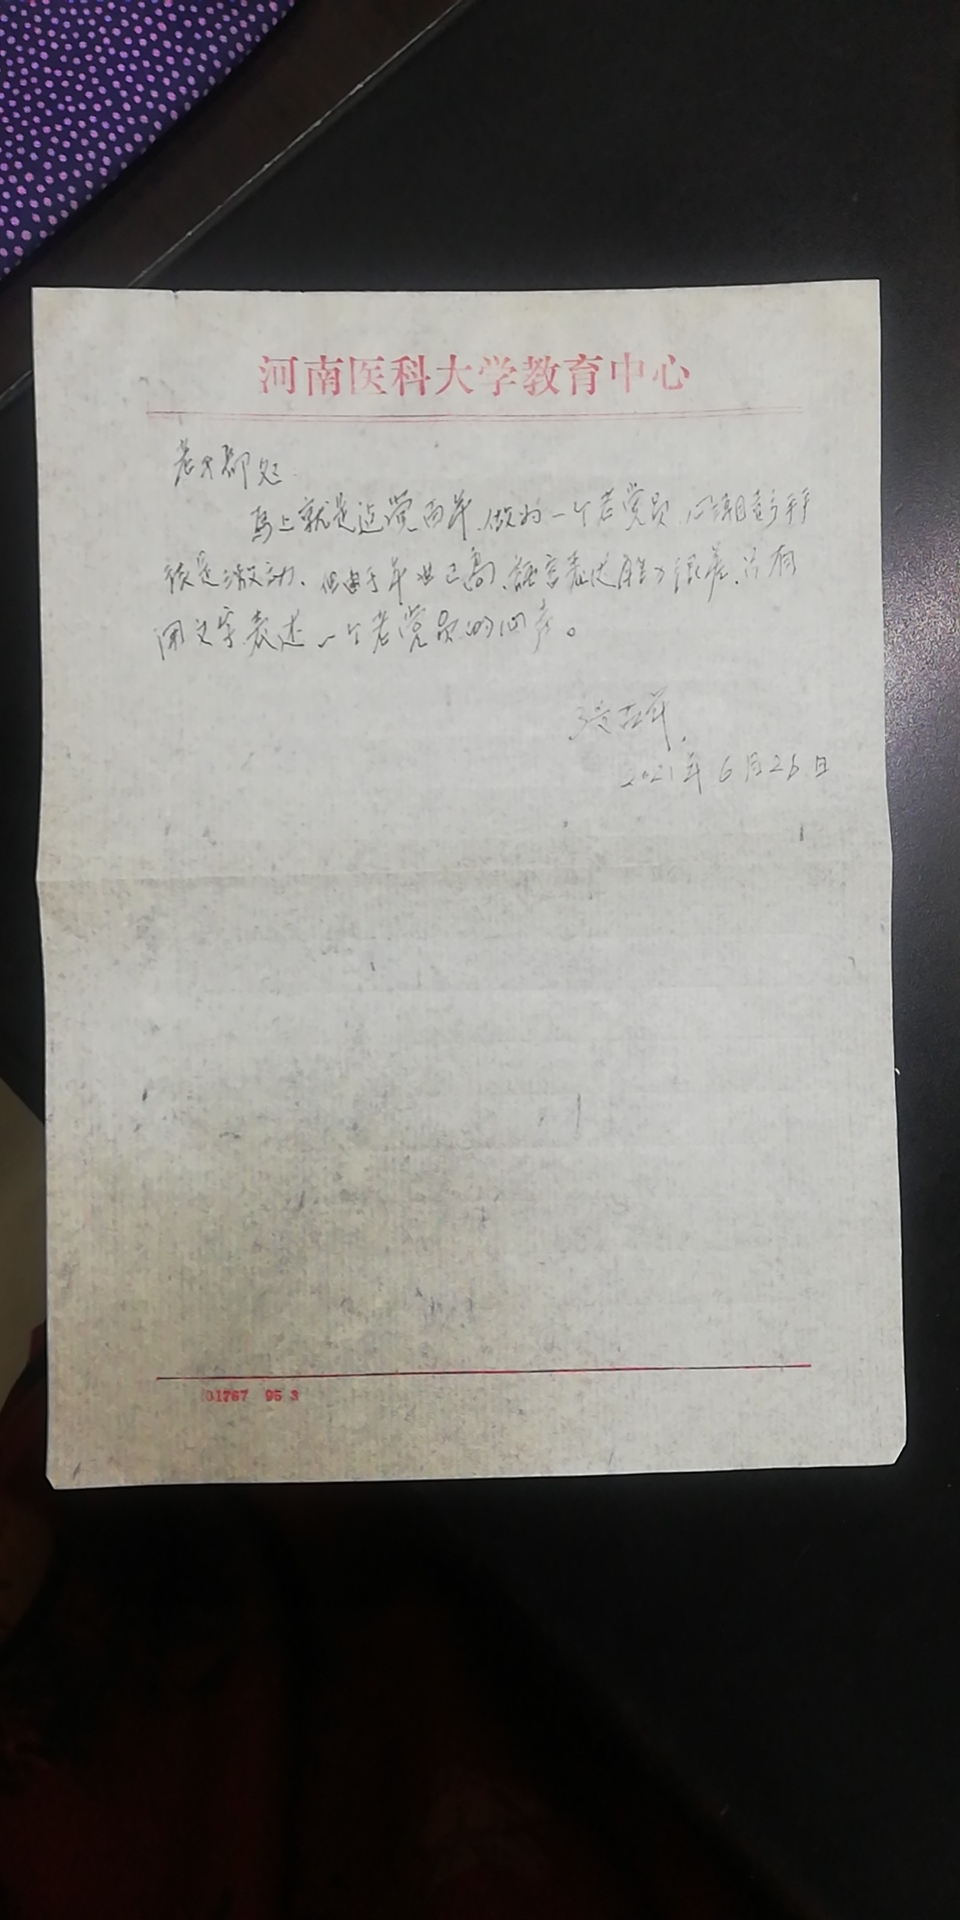 河南医科大学教育中心
老干部处
马上就是建党百年,做为一个老党员,心潮
该是激动、但由于年也已高,語言表达能力很差,只有
用文字表述一个老党员的心声。
张
2021年6月26日
01767 95 3